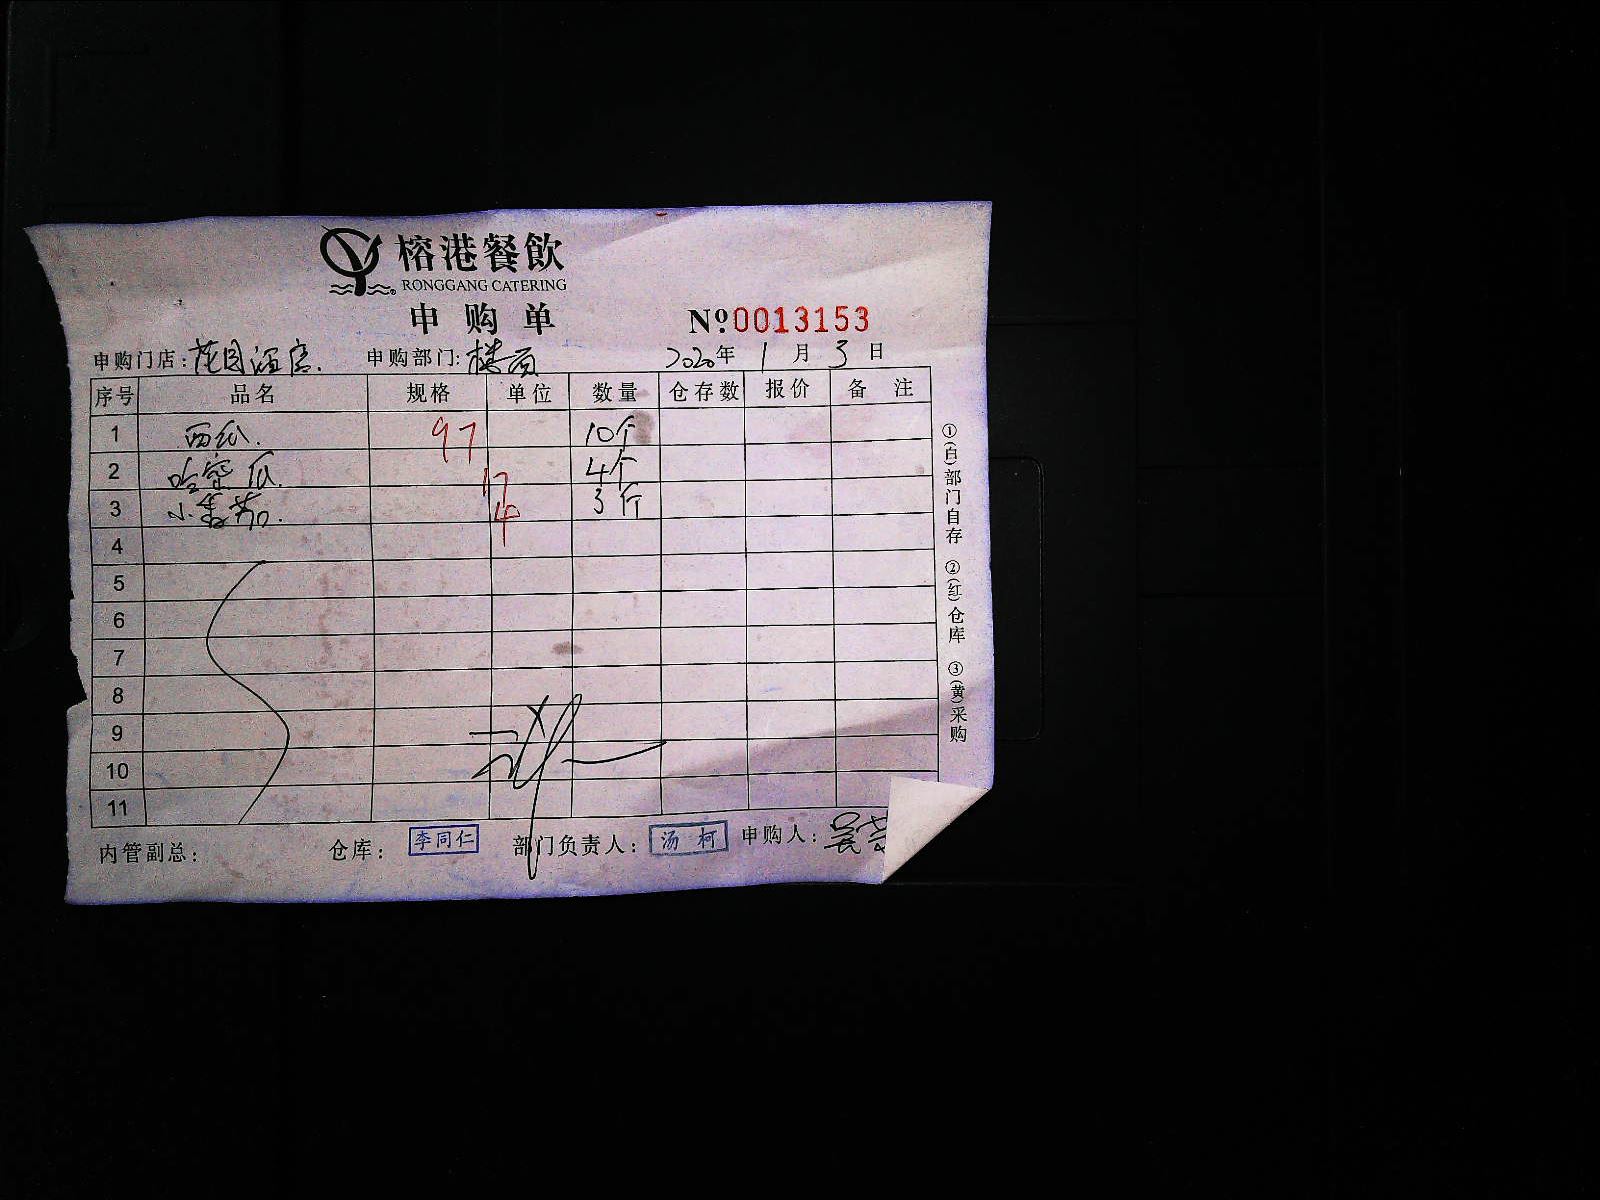 榕港餐飲
RONGGANG CATERING
申购单
No 0013153
申购门店：花园酒店. 申购部门：楼面 2020年 1月 3日
序号 品名 规格 单位 数量 仓存数 报价 备注
1 西瓜. 97 10个
2 哈密瓜. 17 4个
3 小番茄. 4 3斤
4
5
6
7
8
9
10
11
内管副总： 仓库：李同仁 部门负责人：汤柯 申购人：吴
①(白)部门自存 ②(红)仓库 ③(黄)采购